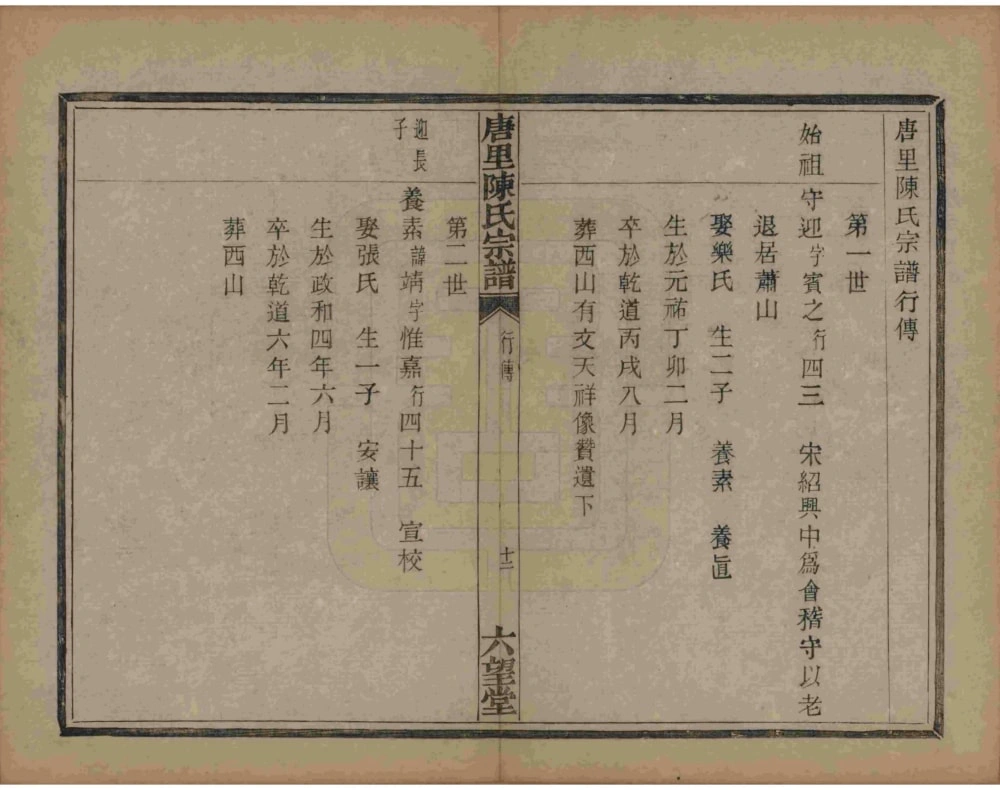 唐里陳氏宗譜行傳
第一世
始祖 守迎字賓之行四三 宋紹興中爲會稽守以老
退居蕭山
娶樂氏 生二子 養素 養眞
生於元祐丁卯二月
卒於乾道丙戌八月
葬西山有文天祥像贊遺下
唐里陳氏宗譜 行傳 十二 六望堂
第二世
迎長子 養素諱靖字惟嘉行四十五 宣校
娶張氏 生一子 安讓
生於政和四年六月
卒於乾道六年二月
葬西山